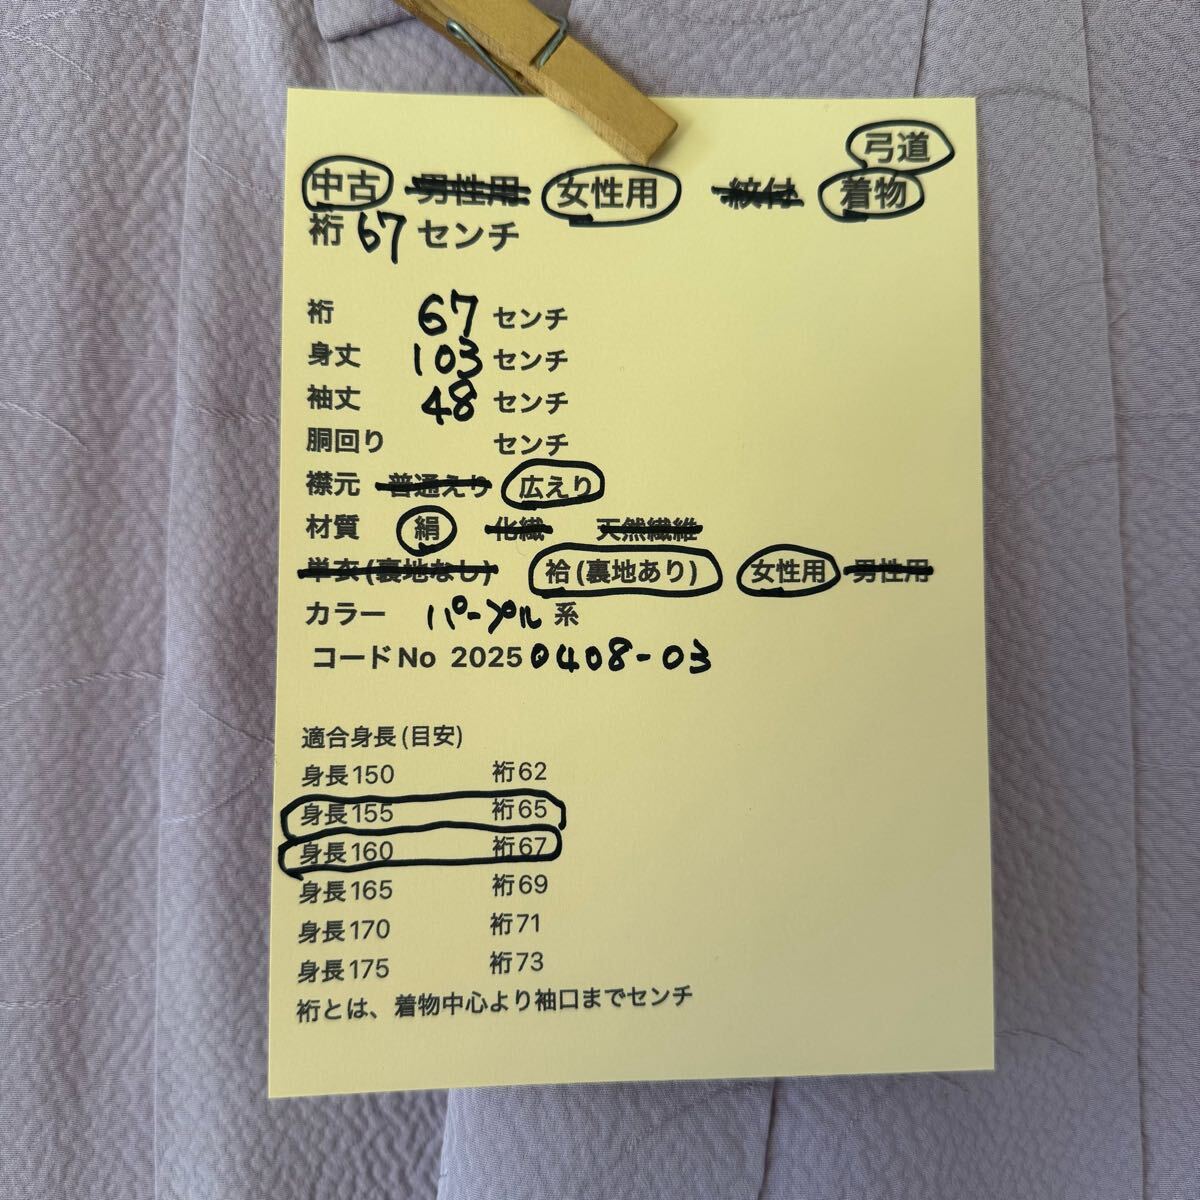 弓道
中古 男性用 女性用 紋付 着物
裄 67 センチ
裄 67 センチ
身丈 103 センチ
袖丈 48 センチ
胴回り センチ
襟元 普通えり 広えり
材質 絹 化繊 天然繊維
単衣(裏地なし) 袷(裏地あり) 女性用 男性用
カラー パープル 系
コードNo 20250408-03
適合身長(目安)
身長150 裄62
身長155 裄65
身長160 裄67
身長165 裄69
身長170 裄71
身長175 裄73
裄とは、着物中心より袖口までセンチ